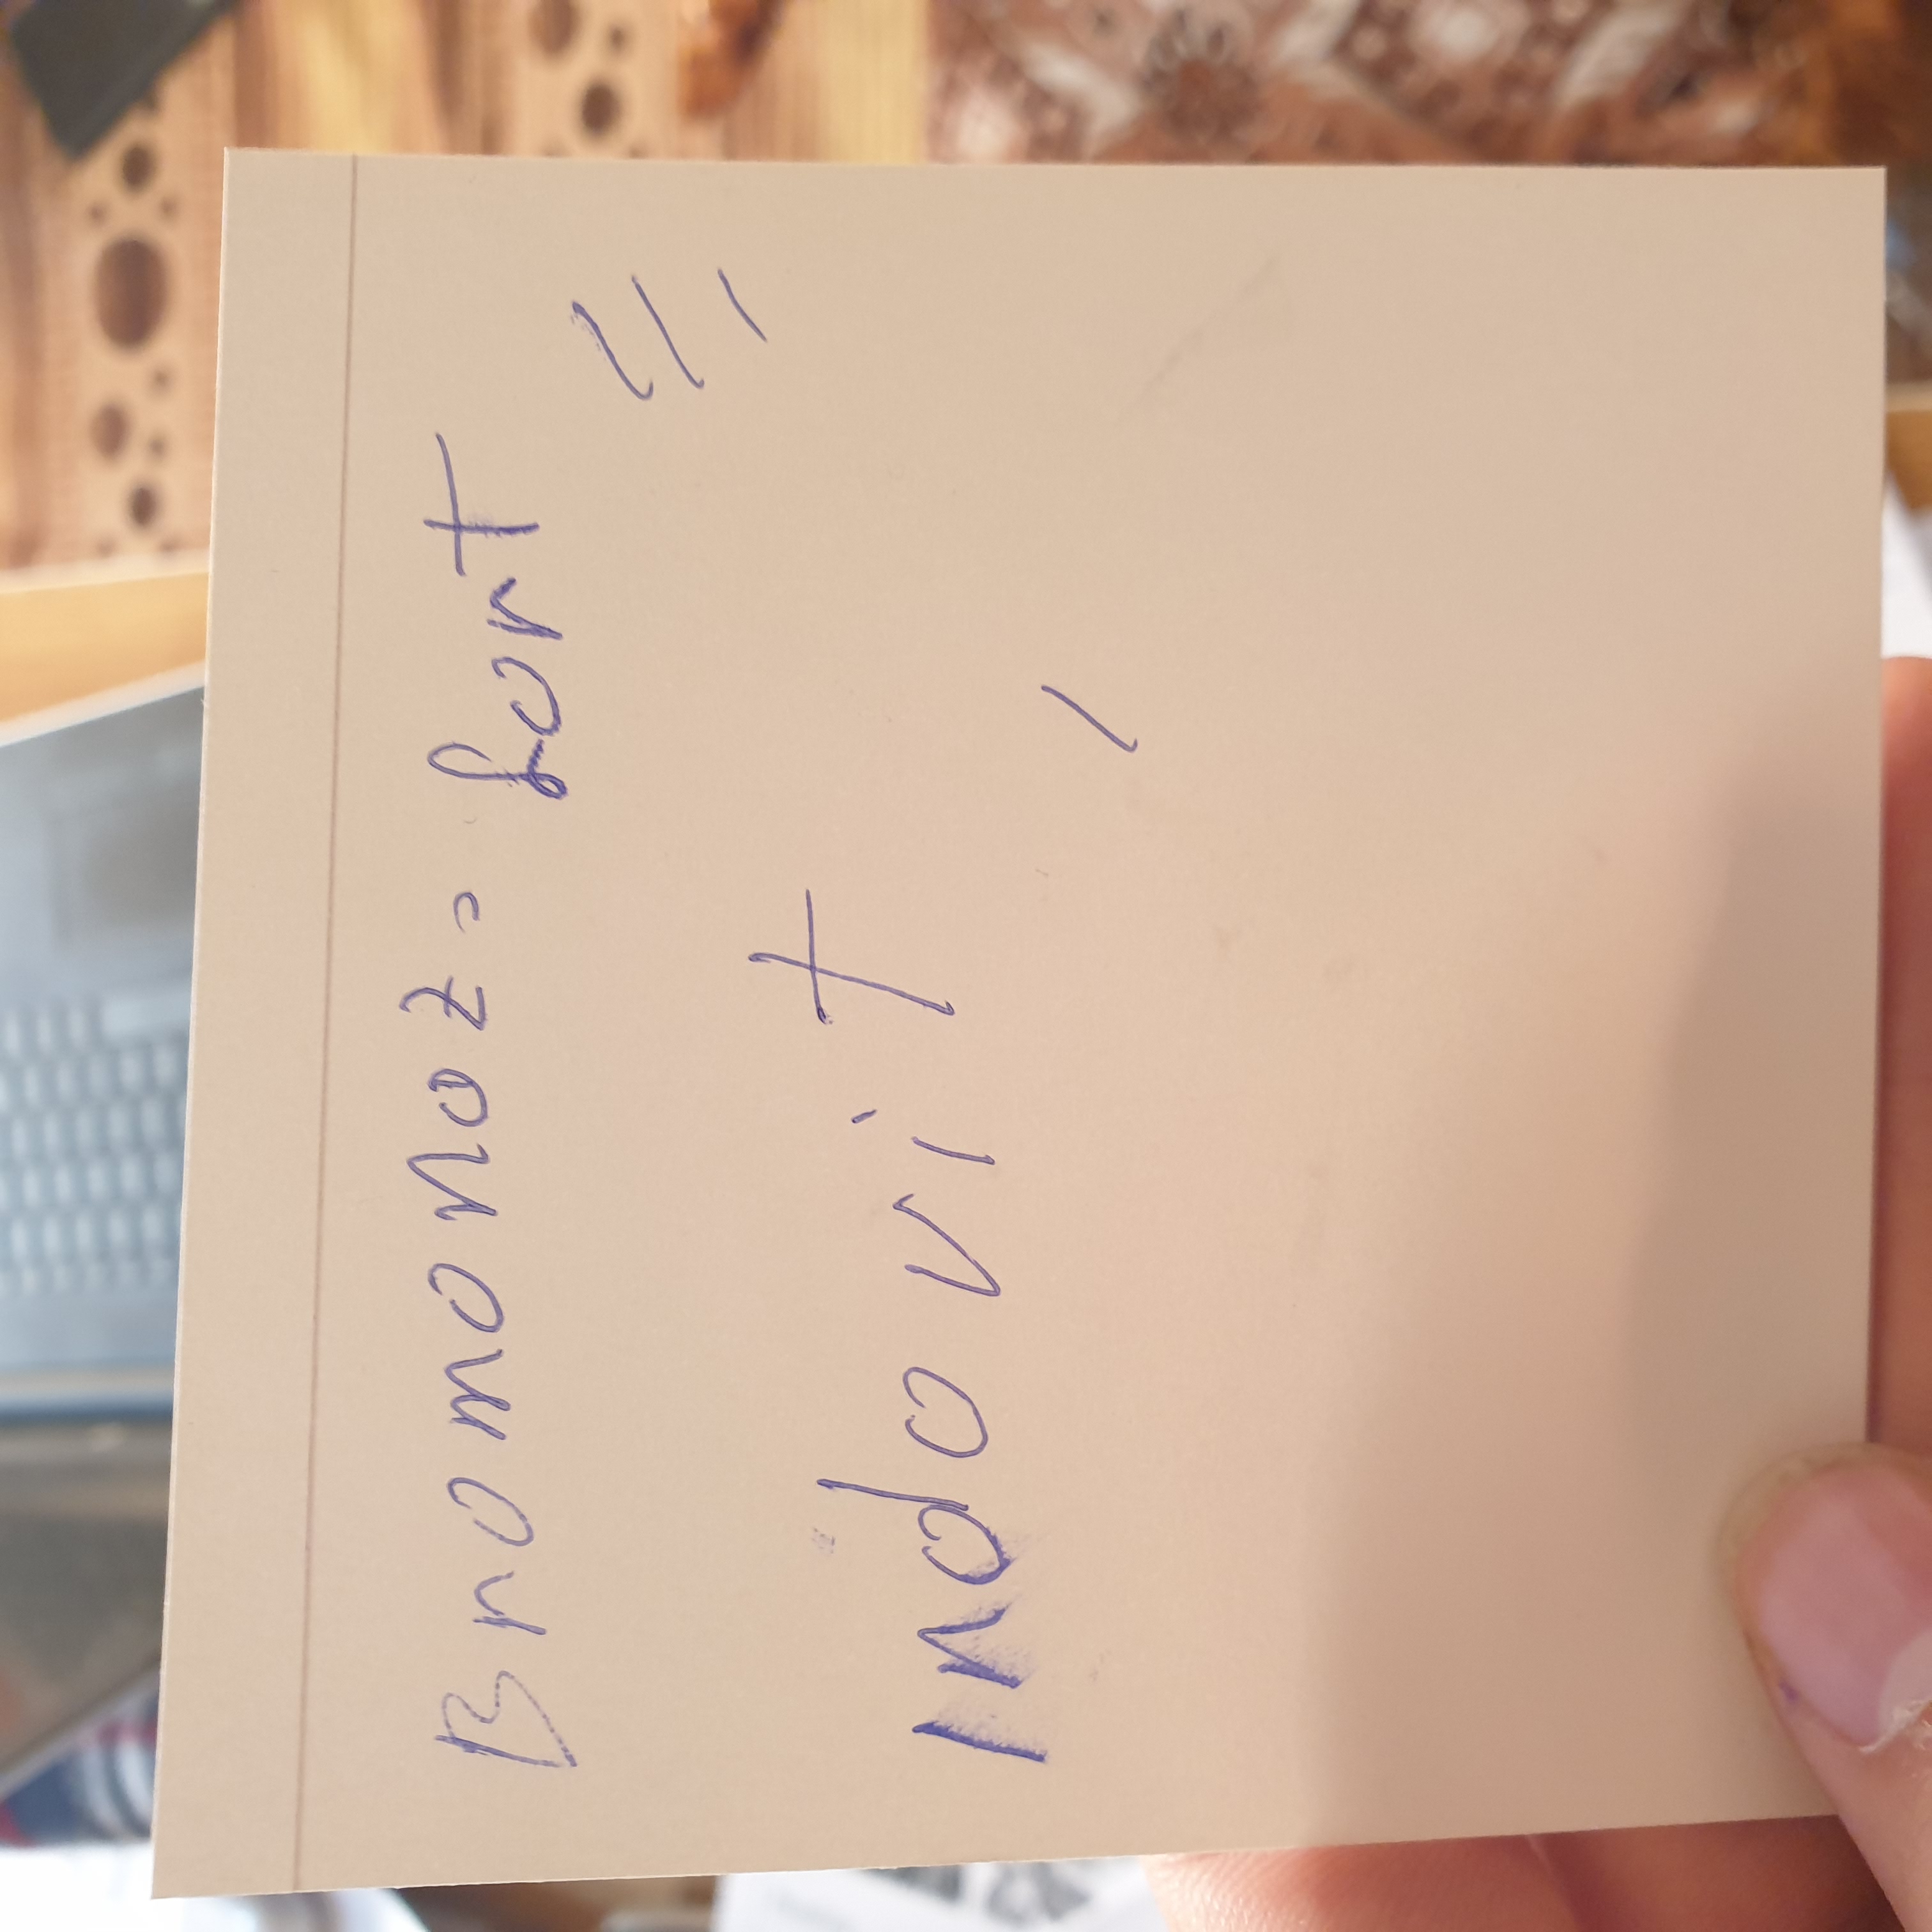 Bromonoz. fort
Indovit